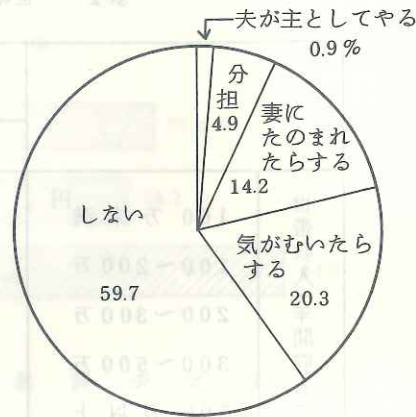 夫が主としてやる
0.9%
分担
4.9
妻に
たのまれ
たらする
14.2
気がむいたら
する
20.3
しない
59.7